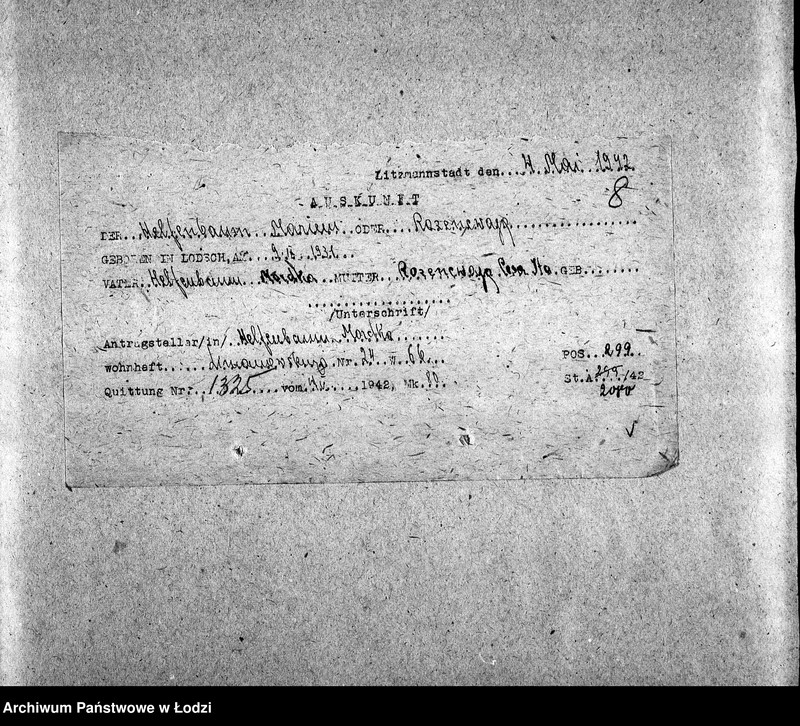 Litzmannstadt den...4. Mai..1942
8
A.U.S.K.U.N.F.T
DER...Helfenbaum...Marieur ODER....Rozencwajg
GEBOREN IN LODSCH, AM 9.II.1931.
VATER. Helfenbaum...Mordka MUTTER...Rozencwajg, GEB.
/Unterschrift/
Antragsteller/in/..Helfenbaum Mordka
wohnhaft Nr. 24 W 62
POS...299.
Quittung Nr...1325 vom 1942, Mk.
St.A. 299/42